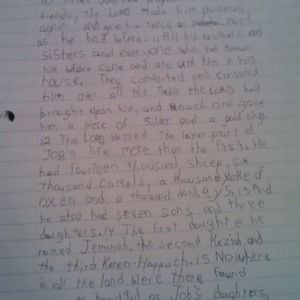 friends, the LORD made him prosperous
again and gave him twice as much
as he had before. 11 All his brothers and
sisters and everyone who had known
him before came and ate with him in his
house. They comforted and consoled
him over all the trouble the LORD had
brought upon him, and each one gave
him a piece of Silver and a gold ring.
12 The LORD blessed The latter part of
JOB'S life more than the first. He
had fourteen thousand sheep, six
thousand camels, a thousand yoke of
oxen and a thousand donkeys. 13 And
he also had seven sons and three
daughters. 14 The first daughter he
named Jemimah, the second Keziah and
the third Keren-Happuch. 15 Nowhere
in all the land were there found
as beautiful as Job's daughters,